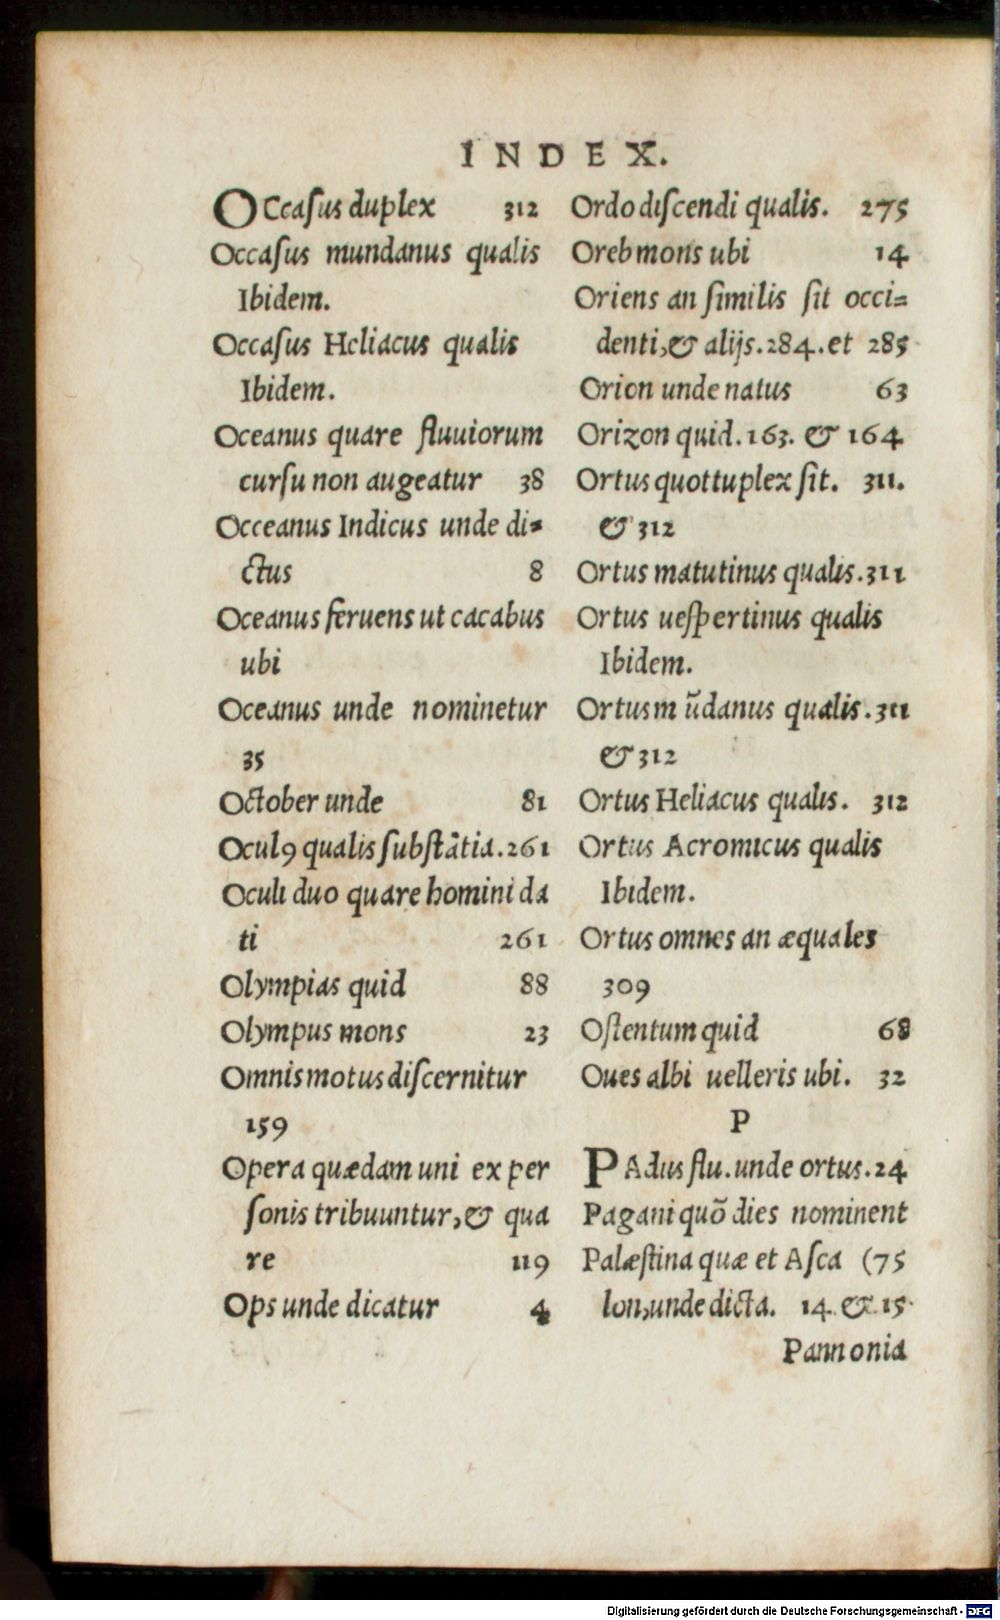 INDEX.
OCcaſus duplex 312
Occaſus mundanus qualis
Ibidem.
Occaſus Heliacus qualis
Ibidem.
Oceanus quare fluuiorum
curſu non augeatur 38
Occeanus Indicus unde di-
ctus 8
Oceanus feruens ut cacabus
ubi
Oceanus unde nominetur
35
October unde 81
Oculꝰ qualis ſubſtãtia. 261
Oculi duo quare homini da
ti 261
Olympias quid 88
Olympus mons 23
Omnis motus diſcernitur
159
Opera quædam uni ex per
ſonis tribuuntur, & qua
re 119
Ops unde dicatur 4
Ordo diſcendi qualis. 275
Oreb mons ubi 14
Oriens an ſimilis ſit occi=
denti, & alijs. 284. et 285
Orion unde natus 63
Orizon quid. 163. & 164
Ortus quottuplex ſit. 311.
& 312
Ortus matutinus qualis. 311
Ortus ueſpertinus qualis
Ibidem.
Ortus mũdanus qualis. 311
& 312
Ortus Heliacus qualis. 312
Ortus Acromicus qualis
Ibidem.
Ortus omnes an æquales
309
Oſtentum quid 68
Oues albi uelleris ubi. 32
P
PAdus flu. unde ortus. 24
Pagani quõ dies nominent
Palæſtina quæ et Aſca (75
lon, unde dicta. 14 & 15
Pannonia
Digitalisierung gefördert durch die Deutsche Forschungsgemeinschaft - DFG